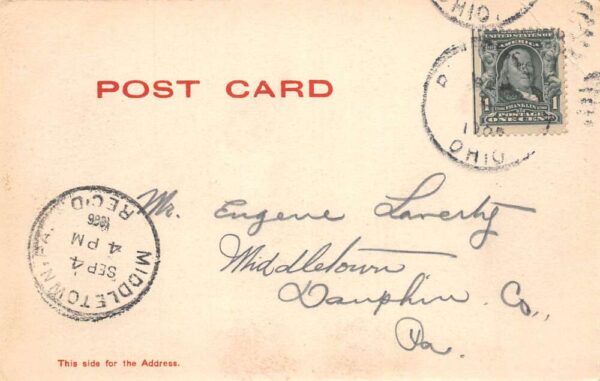 OHIO
UNITED STATES OF
AMERICA
1 FRANKLIN 1
POSTAGE
ONE CENT
OHIO
POST CARD
MIDDLETOWN, PA.
SEP 4
4 PM
1906
REC'D
Mr. Eugene Laverty
Middletown
Dauphin Co.,
Pa.
This side for the Address.